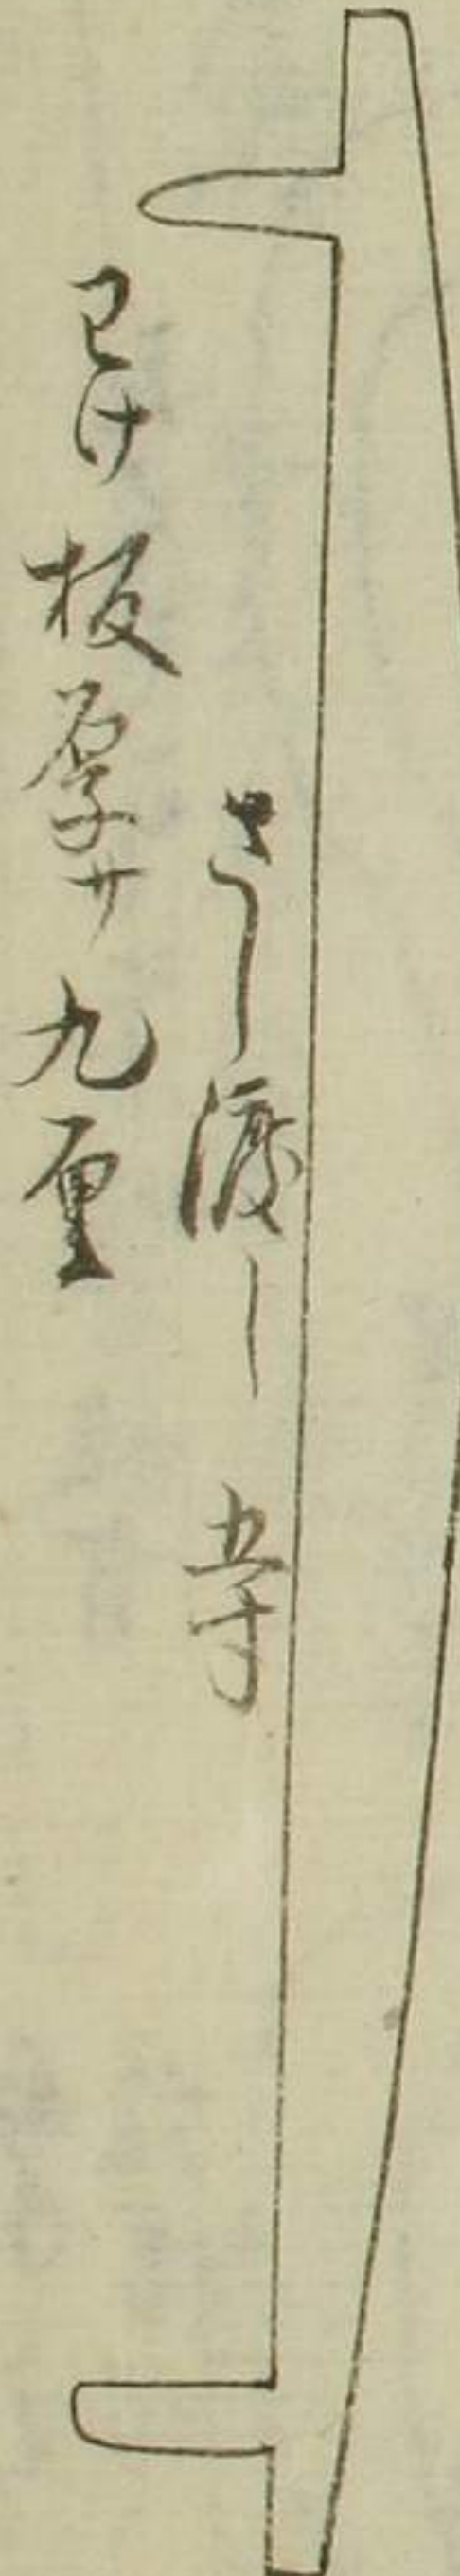 さし渡し 五寸
わけ板厚サ九厘